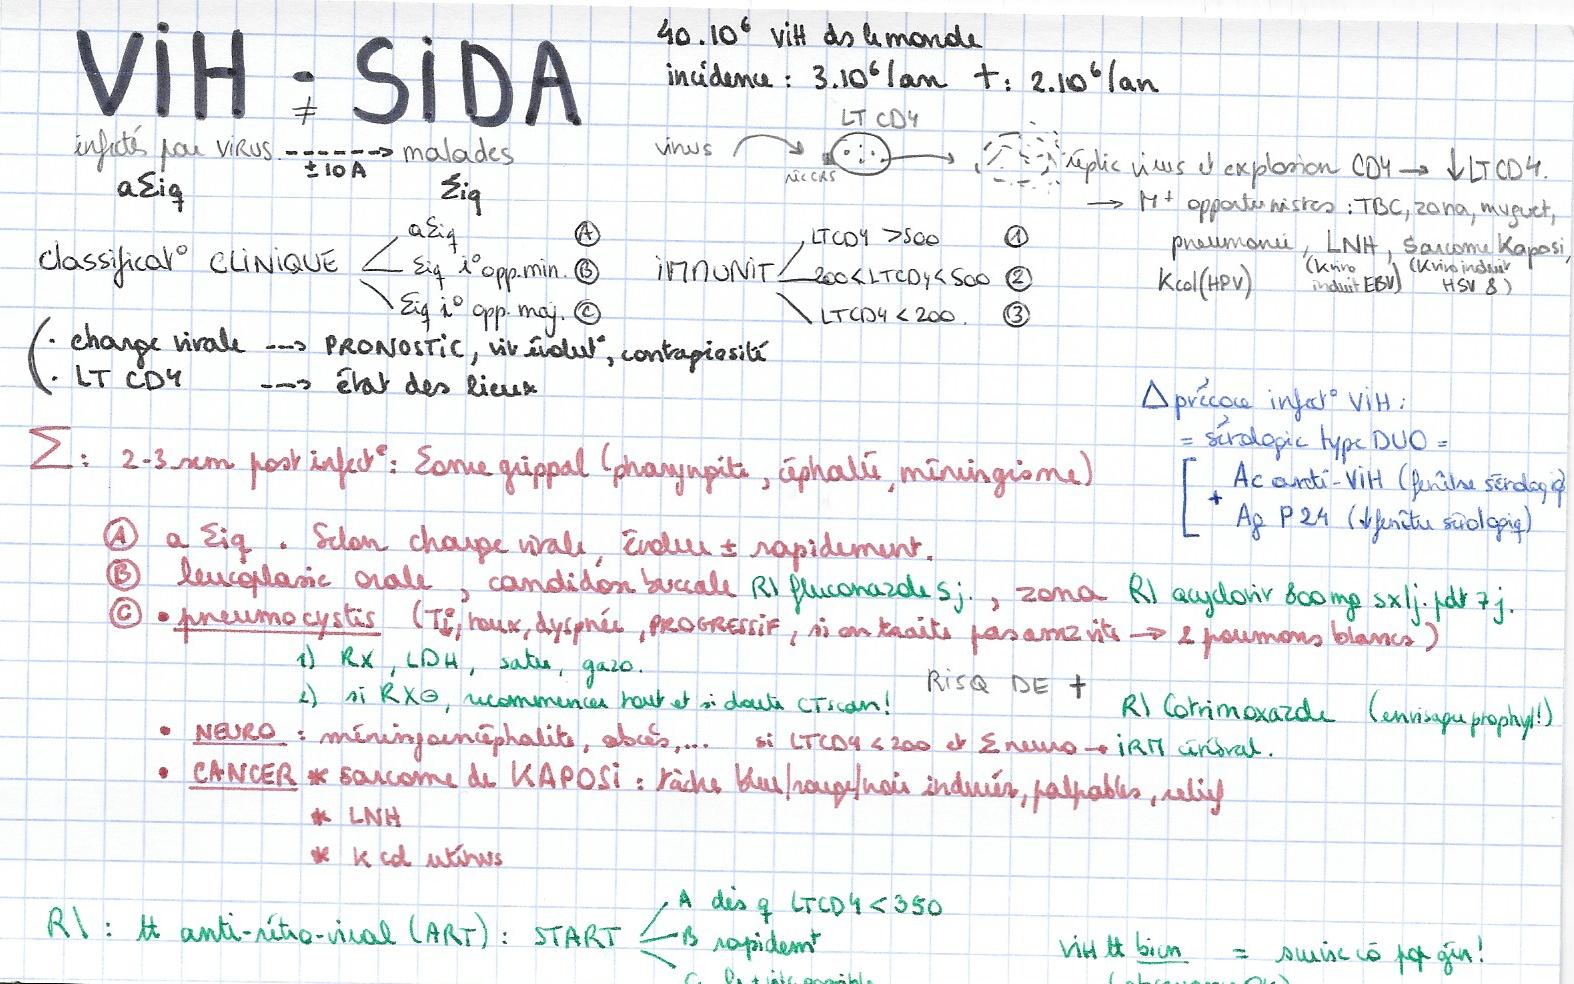 VIH = SIDA
≠
40.10⁶ VIH ds le monde
incidence : 3.10⁶/an †: 2.10⁶/an
infectés par VIRUS ------> malades
± 10 A
aΣiq Σiq
virus LT CD4
réplic virus et explosion CD4 → ↓ LT CD4.
→ M+ opportunistes : TBC, zona, muguet,
pneumonie, LNH, Sarcome Kaposi,
Kcol (HPV) (K viro induit EBV) (K viro induit HSV 8)
classificat° CLINIQUE
aΣiq Ⓐ
Σiq i° opp. min. Ⓑ
Σiq i° opp. maj. Ⓒ
iMMUNIT
LTCD4 >500 ①
200<LTCD4<500 ②
LTCD4 < 200. ③
· charge virale ---> PRONOSTIC, vit évolut°, contagiosité
· LT CD4 ---> état des lieux
Δ précoce infect° VIH :
= sérologie type DUO =
Ac anti-VIH (fenêtre sérologiq)
+
Ag P24 (↓ fenêtre sérologiq)
Σ : 2-3 sem post infect° : Σome grippal (pharyngite, céphalée, méningisme)
Ⓐ a Σiq. Selon charge virale, évolue ± rapidement.
Ⓑ leucoplasie orale, candidose buccale R\ fluconazole 5j., zona R\ acyclovir 800mg 5x/j. pdt 7j.
Ⓒ • pneumocystis (T°, toux, dyspnée, PROGRESSIF, si on traite pas assez vite → 2 poumons blancs)
1) RX, LDH, satu, gazo.
2) si RX⊖, recommencer tout et si doute CTscan!
RISQ DE †
R\ Cotrimoxazole (envisager prophyl!)
• NEURO : méningoencéphalite, abcès,... si LTCD4 < 200 et Σ neuro → iRM cérébral.
• CANCER * sarcome de KAPOSI : tâche bleue/rouge/noir indurées, palpables, relief
* LNH
* K col utérus
R\ : tt anti-rétro-viral (ART) : START
A dès q LTCD4 < 350
B rapidemt
VIH tt bien = survie cô pop gén!